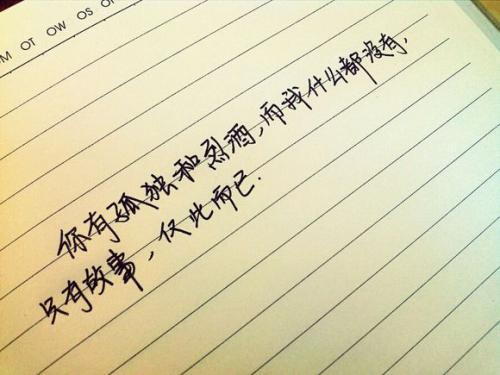 M OT OW OS OF
你有孤独和烈酒,而我什么都没有.
只有故事,仅此而已.